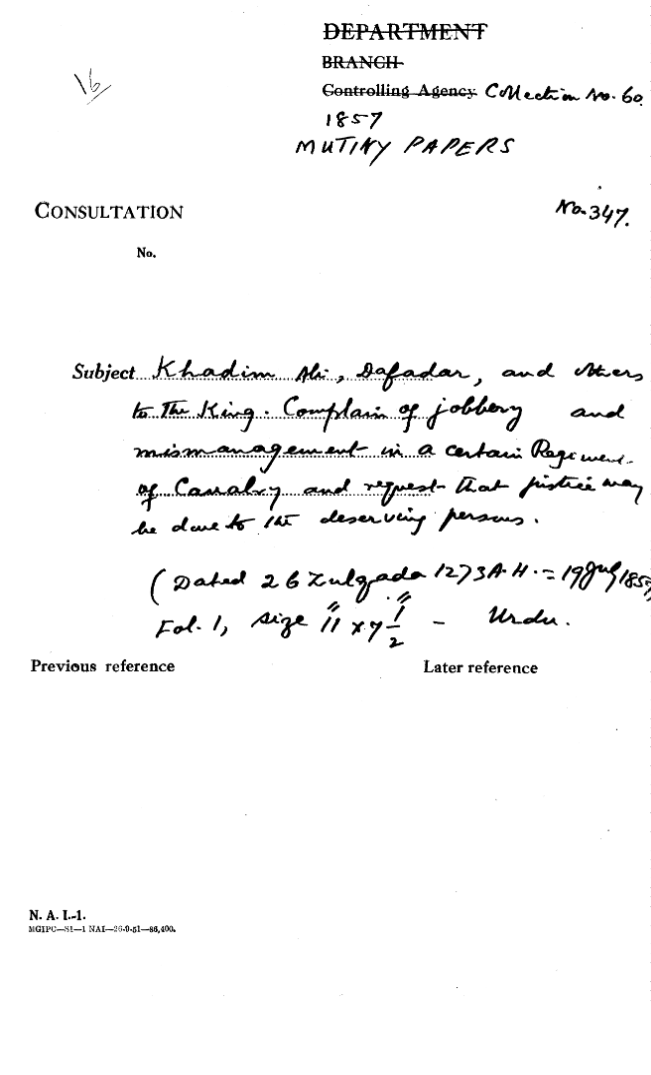 DEPARTMENT
16
BRANCH
Controlling Agency Collection No. 60.
1857
MUTINY PAPERS
CONSULTATION
No. 347.
No.
Subject Khadim Ali, Dafadar, and others
to the King. Complain of jobbery and
mismanagement in a certain Regiment
of Cavalry and request that justice may
be done to the deserving persons.
(Dated 26 Zulqada 1273 A.H. = 19 July 1857,
Fol. 1, size 11" x 7 1/2" - Urdu.
Previous reference Later reference
N. A. I.-1.
MGIPC—S1—1 NAI—26-9-51—86,400.